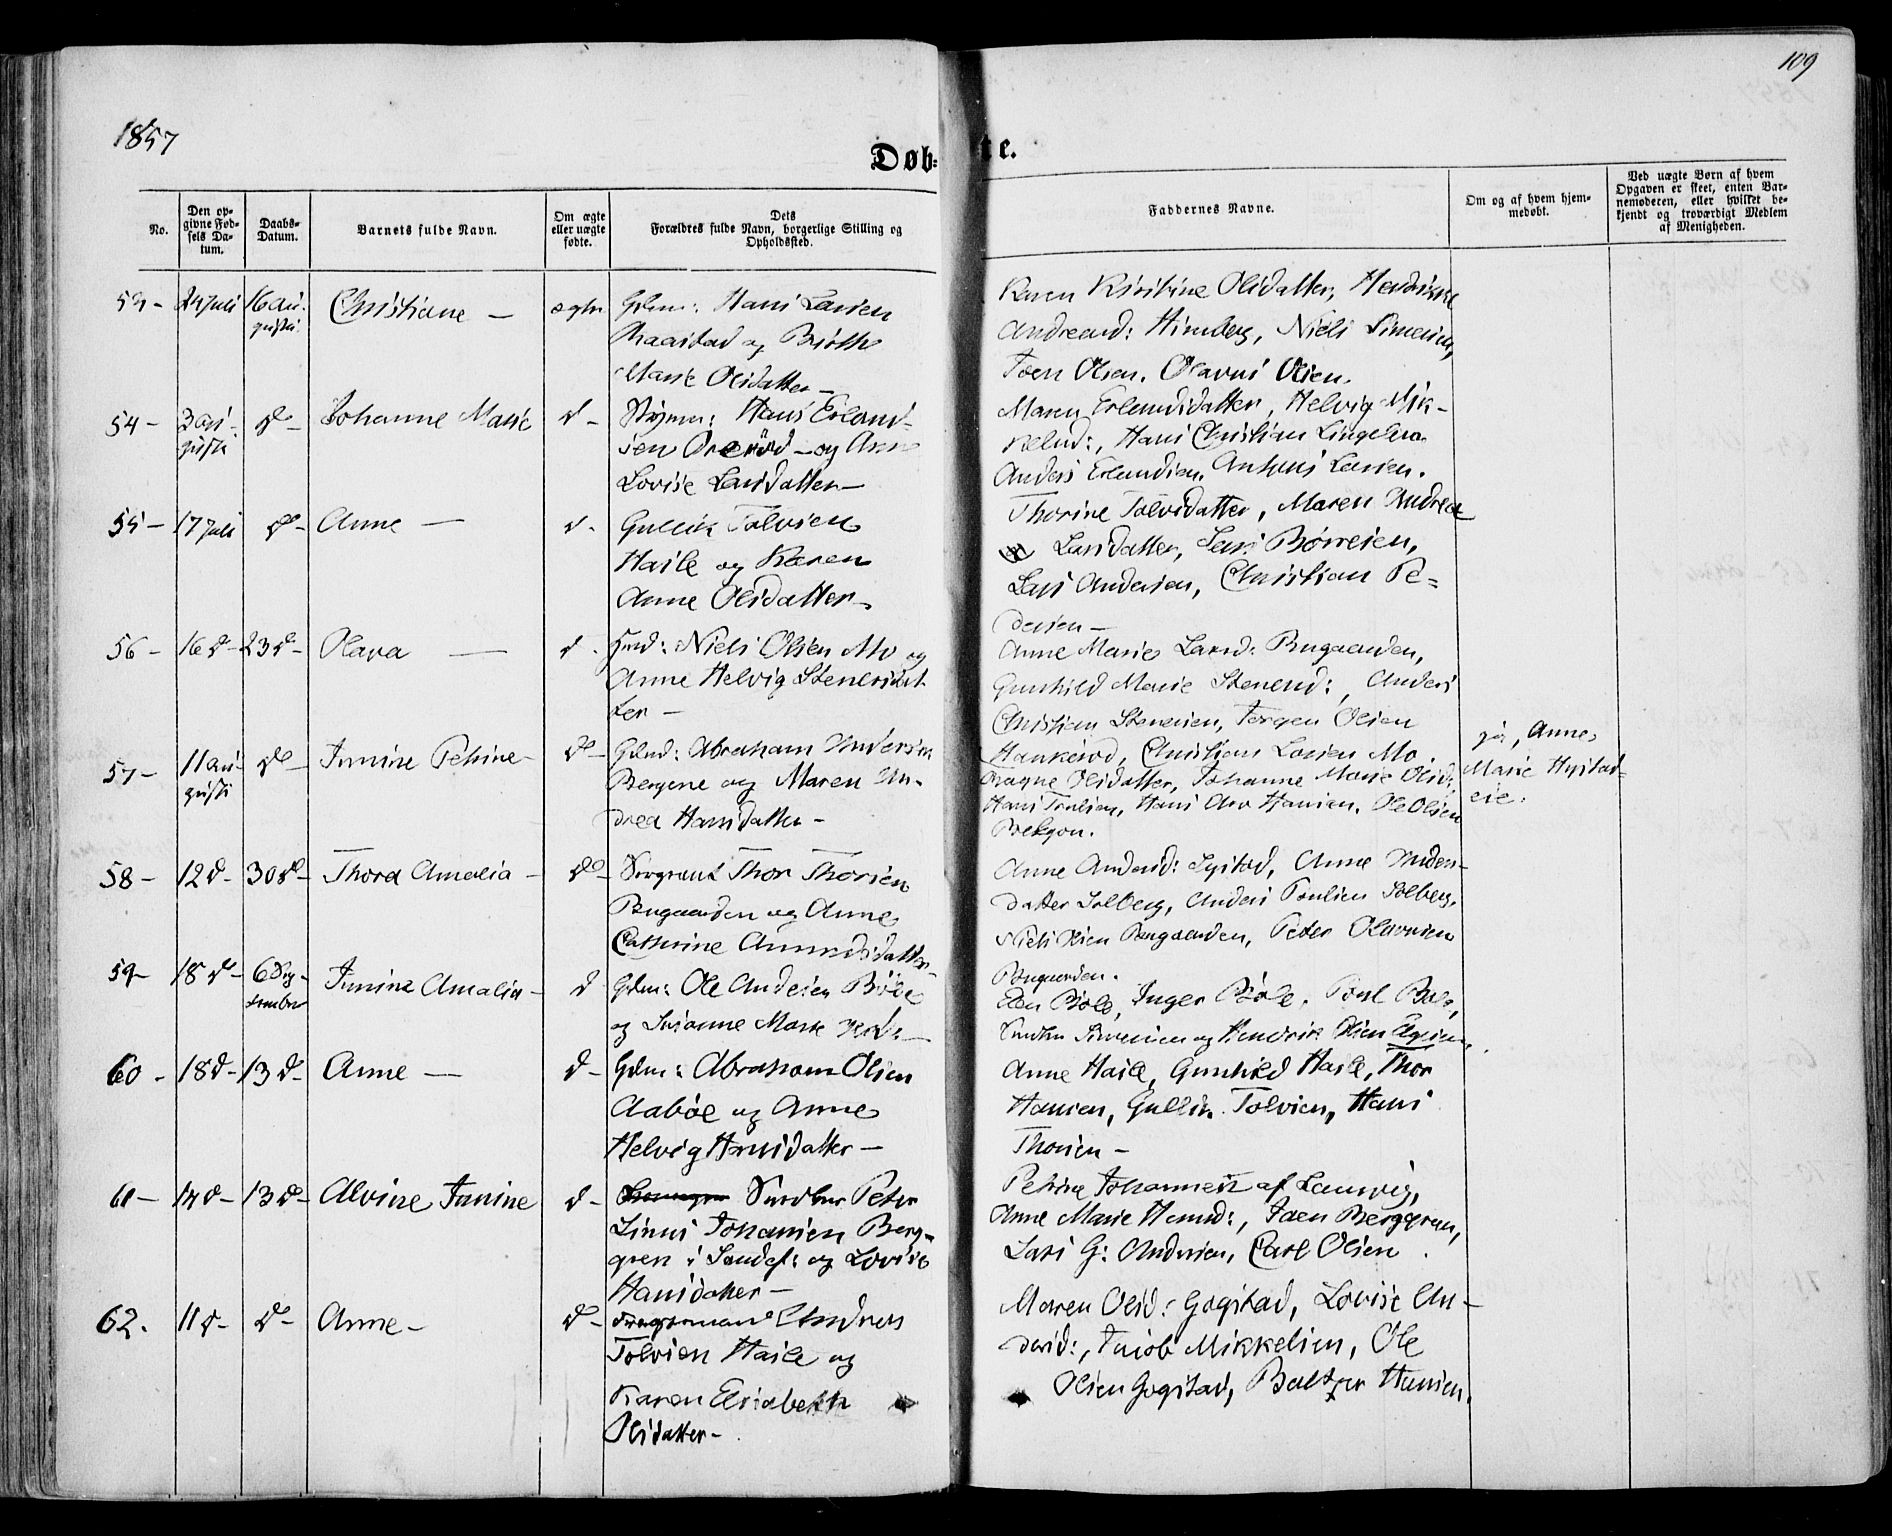 109
1857
Døb-
te.
No.
Den op-
givne Fød-
sels Da-
tum.
Daabs-
Datum.
Barnets fulde Navn.
Om ægte
eller uægte
fødte.
Dets
Forældres fulde Navn, borgerlige Stilling og
Opholdssted.
Faddernes Navne.
Om og af hvem hjem-
medøbt.
Ved uægte Børn af hvem
Opgaven er skeet, enten Bar-
nemoderen, eller hvilket be-
kjendt og troværdigt Medlem
af Menigheden.
24 Juli
16 Au-
gusti.
Christiane —
ægte
Gdm: Hans Larsen
Raastad og
Marie Olsdatter —
Karen Kirstine Olsdatter,
Andreasd: Himberg, Niels Simensen,
Olsen, Olavus Olsen.
54 —
3 Au-
gusti
do —
Johanne Marie
d —
Hans Erland-
sen og Anne
Lovise Larsdatter —
Maren Erlandsdatter, Helvig Mik-
kelsd:, Hans Christian
Anders Erlandsen, Larsen.
55 —
17 Juli
do —
Anne —
d -
Gullik Tolvsen
Hasle og Karen
Anne Olsdatter —
Thorine Tolvsdatter, Maren Andrea
Larsdatter, Lars Børresen,
Lars Andersen, Christian Pe-
dersen —
56 —
16 d —
23 d —
Olava —
d -
Husd: Niels Olsen Mo og
Anne Helvig Stenersdat-
ter —
Anne Marie Larsd: Bugaarden,
Gunhild Marie Stenersd:, Anders
Christian Stenersen, Jørgen Olsen
Haukerød, Christian Larsen Mo.
57 —
11 Au-
gusti
do —
Petrine —
do —
Abraham Andersen
Bergene og Maren An-
drea Hansdatter —
Olsdatter, Johanne Marie Olsd:,
Hans Hansen, Ole Olsen
ja, Anne
Marie Hystad-
eie.
58 —
12 d —
30 d —
Thora Amalia —
do —
Sergeant Thor Thorsen
Bugaarden og Anne
Cathrine Amundsdatter —
Anne Andersd: Hystad, Anne Anders-
datter Solberg, Anders Paulsen Solberg,
Niels Olsen Bugaarden, Peter Olavesen
Bugaarden.
59 —
18 d —
6 Sep-
tember
Amalia —
d
Gdm: Ole Andersen Bøle
og Susanne Marie
Bøle, Inger Bøle, Poul Bøle,
og Hendrik Olsen
60 —
18 d —
13 d —
Anne —
d —
Gdm: Abraham Olsen
Aabøe og Anne
Helvig Hansdatter —
Anne Hasle, Gunhild Hasle, Thor
Hansen, Gullik Tolvsen, Hans
Thorsen —
61 —
14 d —
13 d —
Alvine
d —
Peter
Linus Johansen Berg-
gren i Sandef: og Lovise
Hansdatter —
Petrine Johannesen af Laurvig,
Anne Marie Hansd:, Berggren,
Lars G: Andersen, Carl Olsen
62.
11 d —
do —
Anne —
do —
Andreas
Tolvsen Hasle og
Karen Elisabeth
Olsdatter —
Maren Olsd: Gogstad, Lovise An-
dersd:, Jacob Mikkelsen, Ole
Olsen Gogstad, Baltzer Hansen.